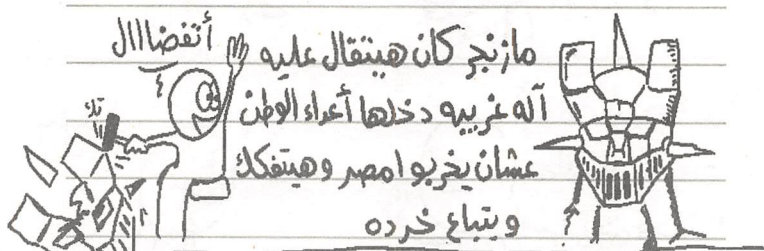 أتفضااال
مازنجر كان هيتقال عليه
آله غريبه دخلها أعداء الوطن
عشان يخربوا مصر وهيتفكك
ويتباع خرده
تك